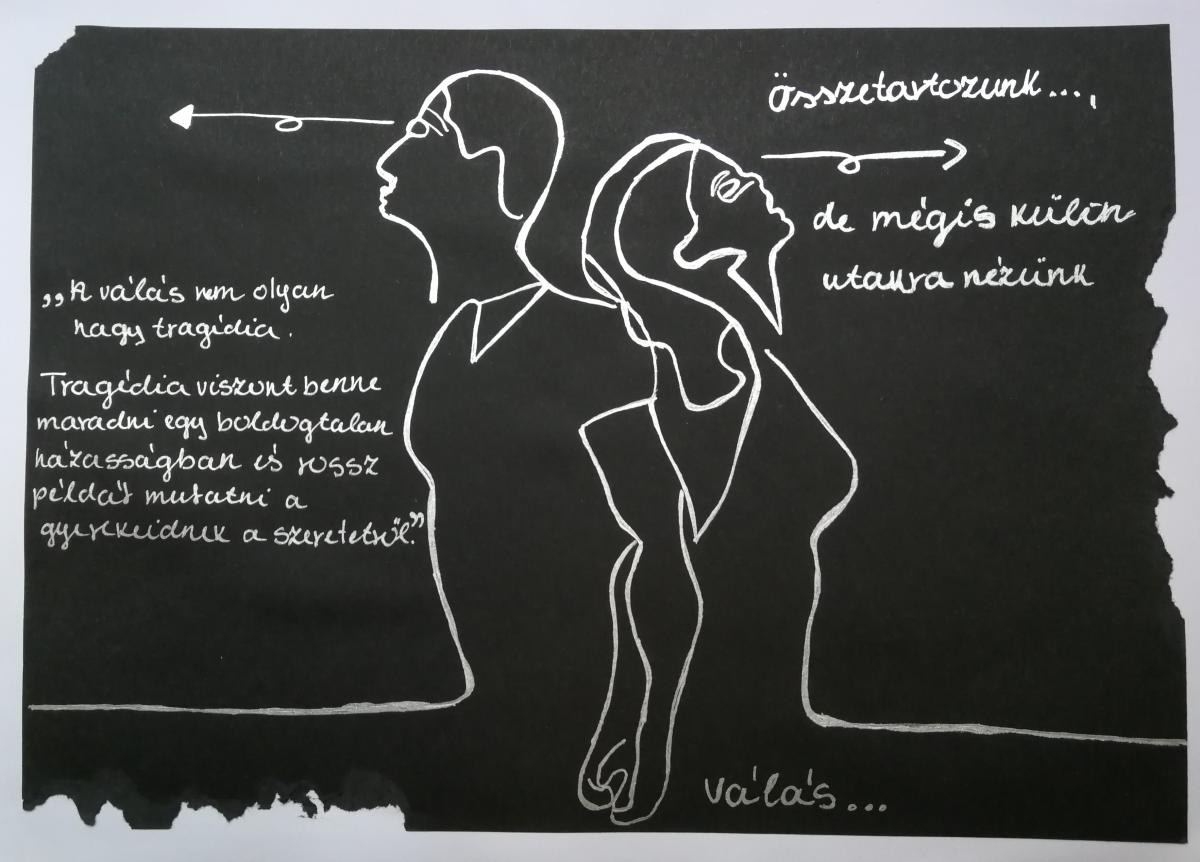 Összetartozunk...,
de mégis külön
utakra nézünk
„A válás nem olyan
nagy tragédia.
Tragédia viszont benne
maradni egy boldogtalan
házasságban és rossz
példát mutatni a
gyerekeidnek a szeretetről."
válás...